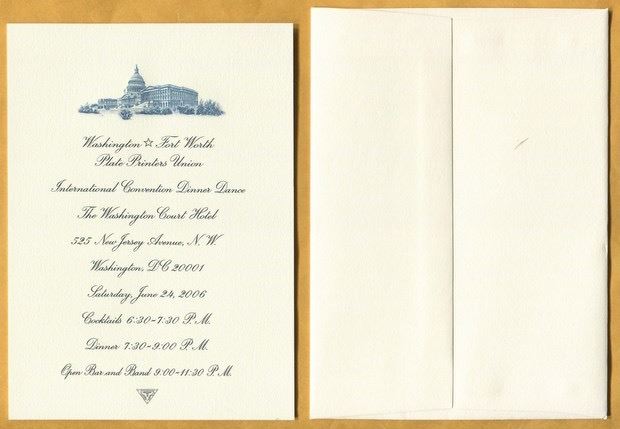 Washington ☆ Fort Worth
Plate Printers Union
International Convention Dinner Dance
The Washington Court Hotel
525 New Jersey Avenue, N. W.
Washington, DC 20001
Saturday, June 24, 2006
Cocktails 6:30-7:30 P.M.
Dinner 7:30-9:00 P.M.
Open Bar and Band 9:00-11:30 P.M.